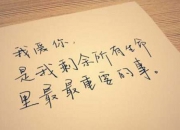 我愛你,
是我剩余所有生命
里最最重要的事。